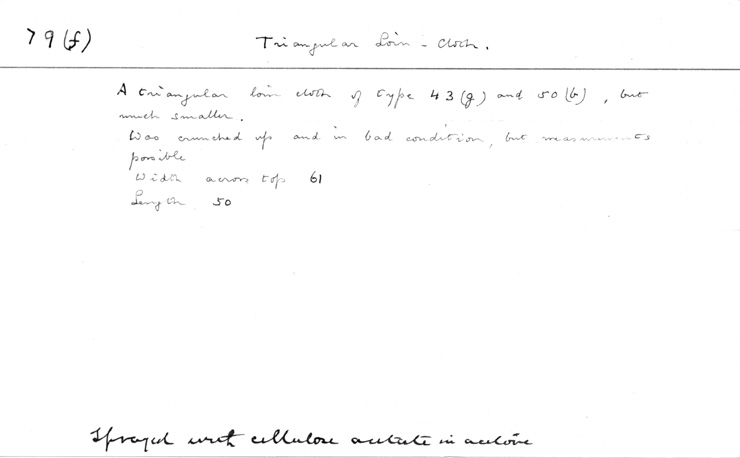 79(f)
Triangular Loin-Cloth.
A triangular loin cloth of type 43(g) and 50(b), but
much smaller.
Was crunched up and in bad condition, but measurements
possible
Width across top 61
Length 50
Sprayed with cellulose acetate in acetone